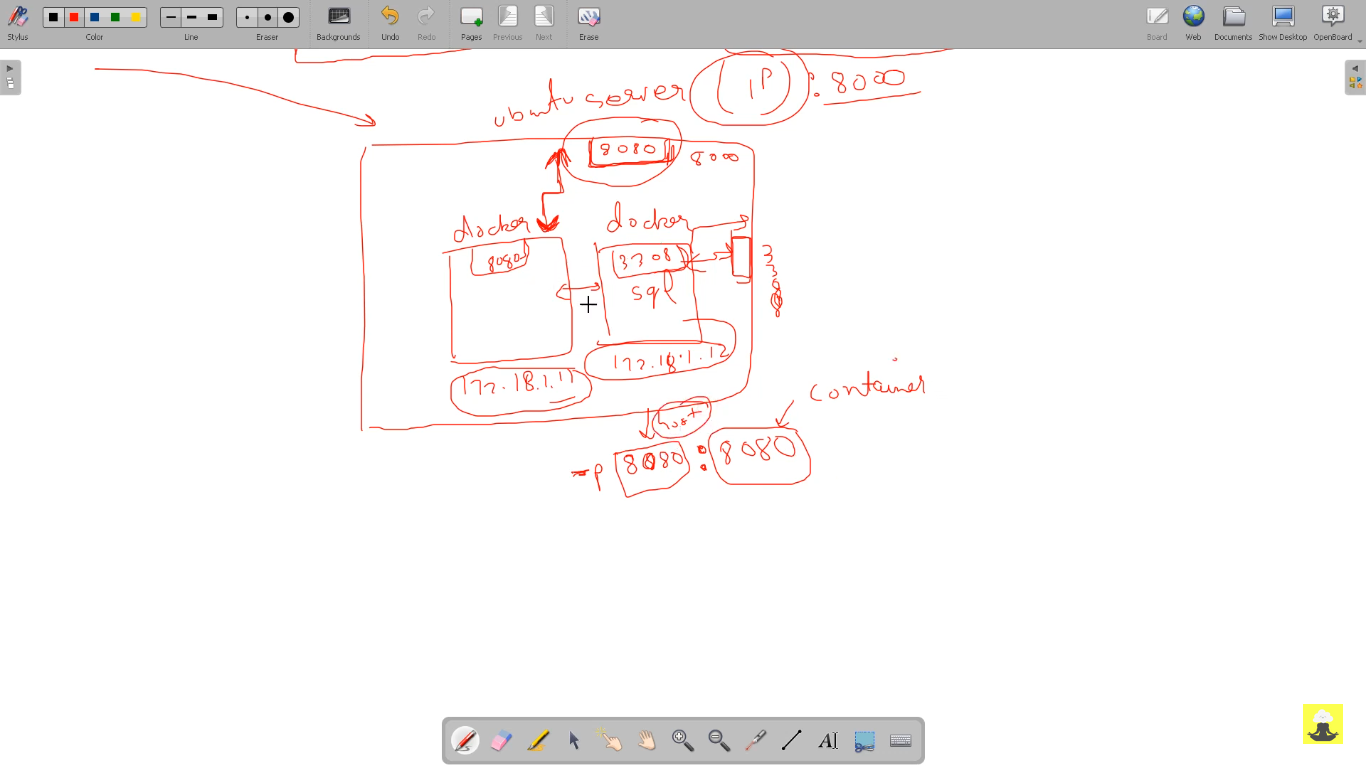 Stylus
Color
Line
Eraser
Backgrounds
Undo
Redo
Pages
Previous
Next
Erase
Board
Web
Documents
Show Desktop
OpenBoard
ubuntu server (IP) : 8000
8080 8000
docker docker
8080
sql
172.18.1.12
172.18.1.11
container
host
-p 8080 : 8080